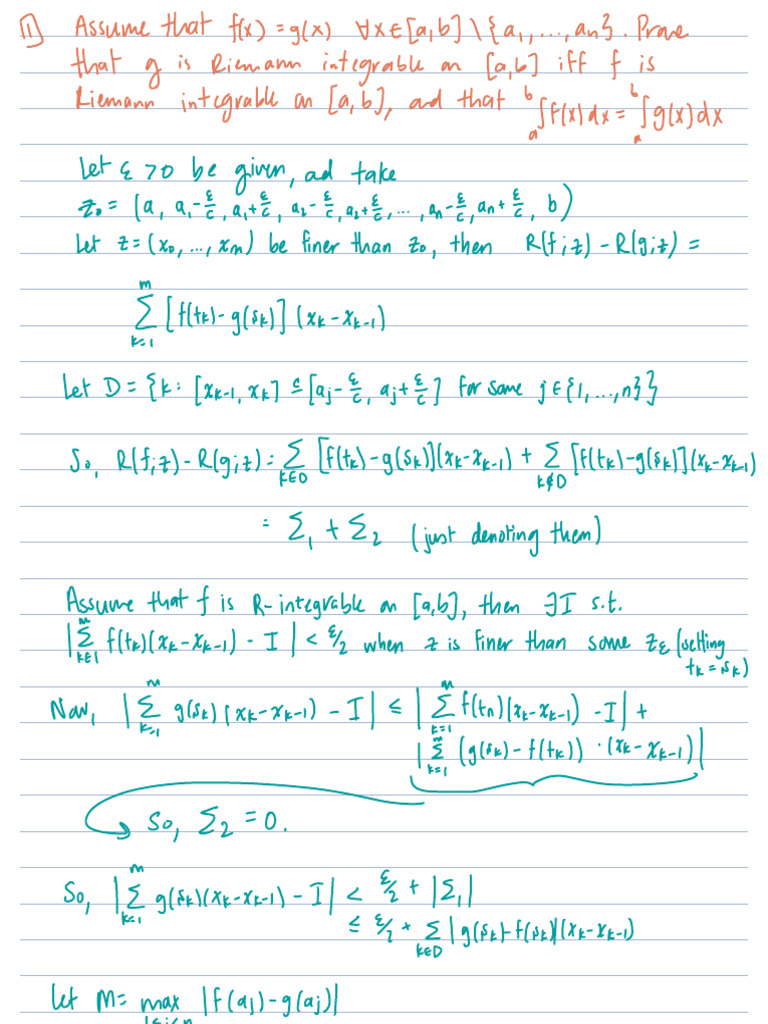 11 Assume that f(x) = g(x) ∀x∈[a,b] \ {a₁,...,aₙ}. Prove
that g is Riemann integrable on [a,b] iff f is
Riemann integrable on [a,b], and that ₐᵇ∫f(x)dx = ₐᵇ∫g(x)dx
Let ε > 0 be given, ad take
z₀ = (a, a₁-ε/c, a₁+ε/c, a₂-ε/c, a₂+ε/c, ..., aₙ-ε/c, aₙ+ε/c, b)
Let z = (x₀, ..., xₘ) be finer than z₀, then R(f;z) - R(g;z) =
∑ₖ₌₁ᵐ [f(tₖ) - g(sₖ)] (xₖ - xₖ₋₁)
Let D = {k: [xₖ₋₁, xₖ] ⊆ [aⱼ-ε/c, aⱼ+ε/c] for some j∈{1,...,n}}
So, R(f;z) - R(g;z) = ∑_{k∈D} [f(tₖ) - g(sₖ)](xₖ - xₖ₋₁) + ∑_{k∉D} [f(tₖ) - g(sₖ)](xₖ - xₖ₋₁)
= Σ₁ + Σ₂ (just denoting them)
Assume that f is R-integrable on [a,b], then ∃I s.t.
|∑_{k∈1}ᵐ f(tₖ)(xₖ - xₖ₋₁) - I| < ε/2 when z is finer than some z_ε (setting
tₖ = sₖ)
Now, |∑ₖ₌₁ᵐ g(sₖ)(xₖ - xₖ₋₁) - I| ≤ |∑ₖ₌₁ᵐ f(tₙ)(xₖ - xₖ₋₁) - I| +
|∑ₖ₌₁ᵐ (g(sₖ) - f(tₖ)) · (xₖ - xₖ₋₁)|
So, Σ₂ = 0.
So, |∑ₖ₌₁ᵐ g(sₖ)(xₖ - xₖ₋₁) - I| < ε/2 + |Σ₁|
≤ ε/2 + ∑_{k∈D} |g(sₖ) - f(sₖ)|(xₖ - xₖ₋₁)
let M = max |f(aⱼ) - g(aⱼ)|